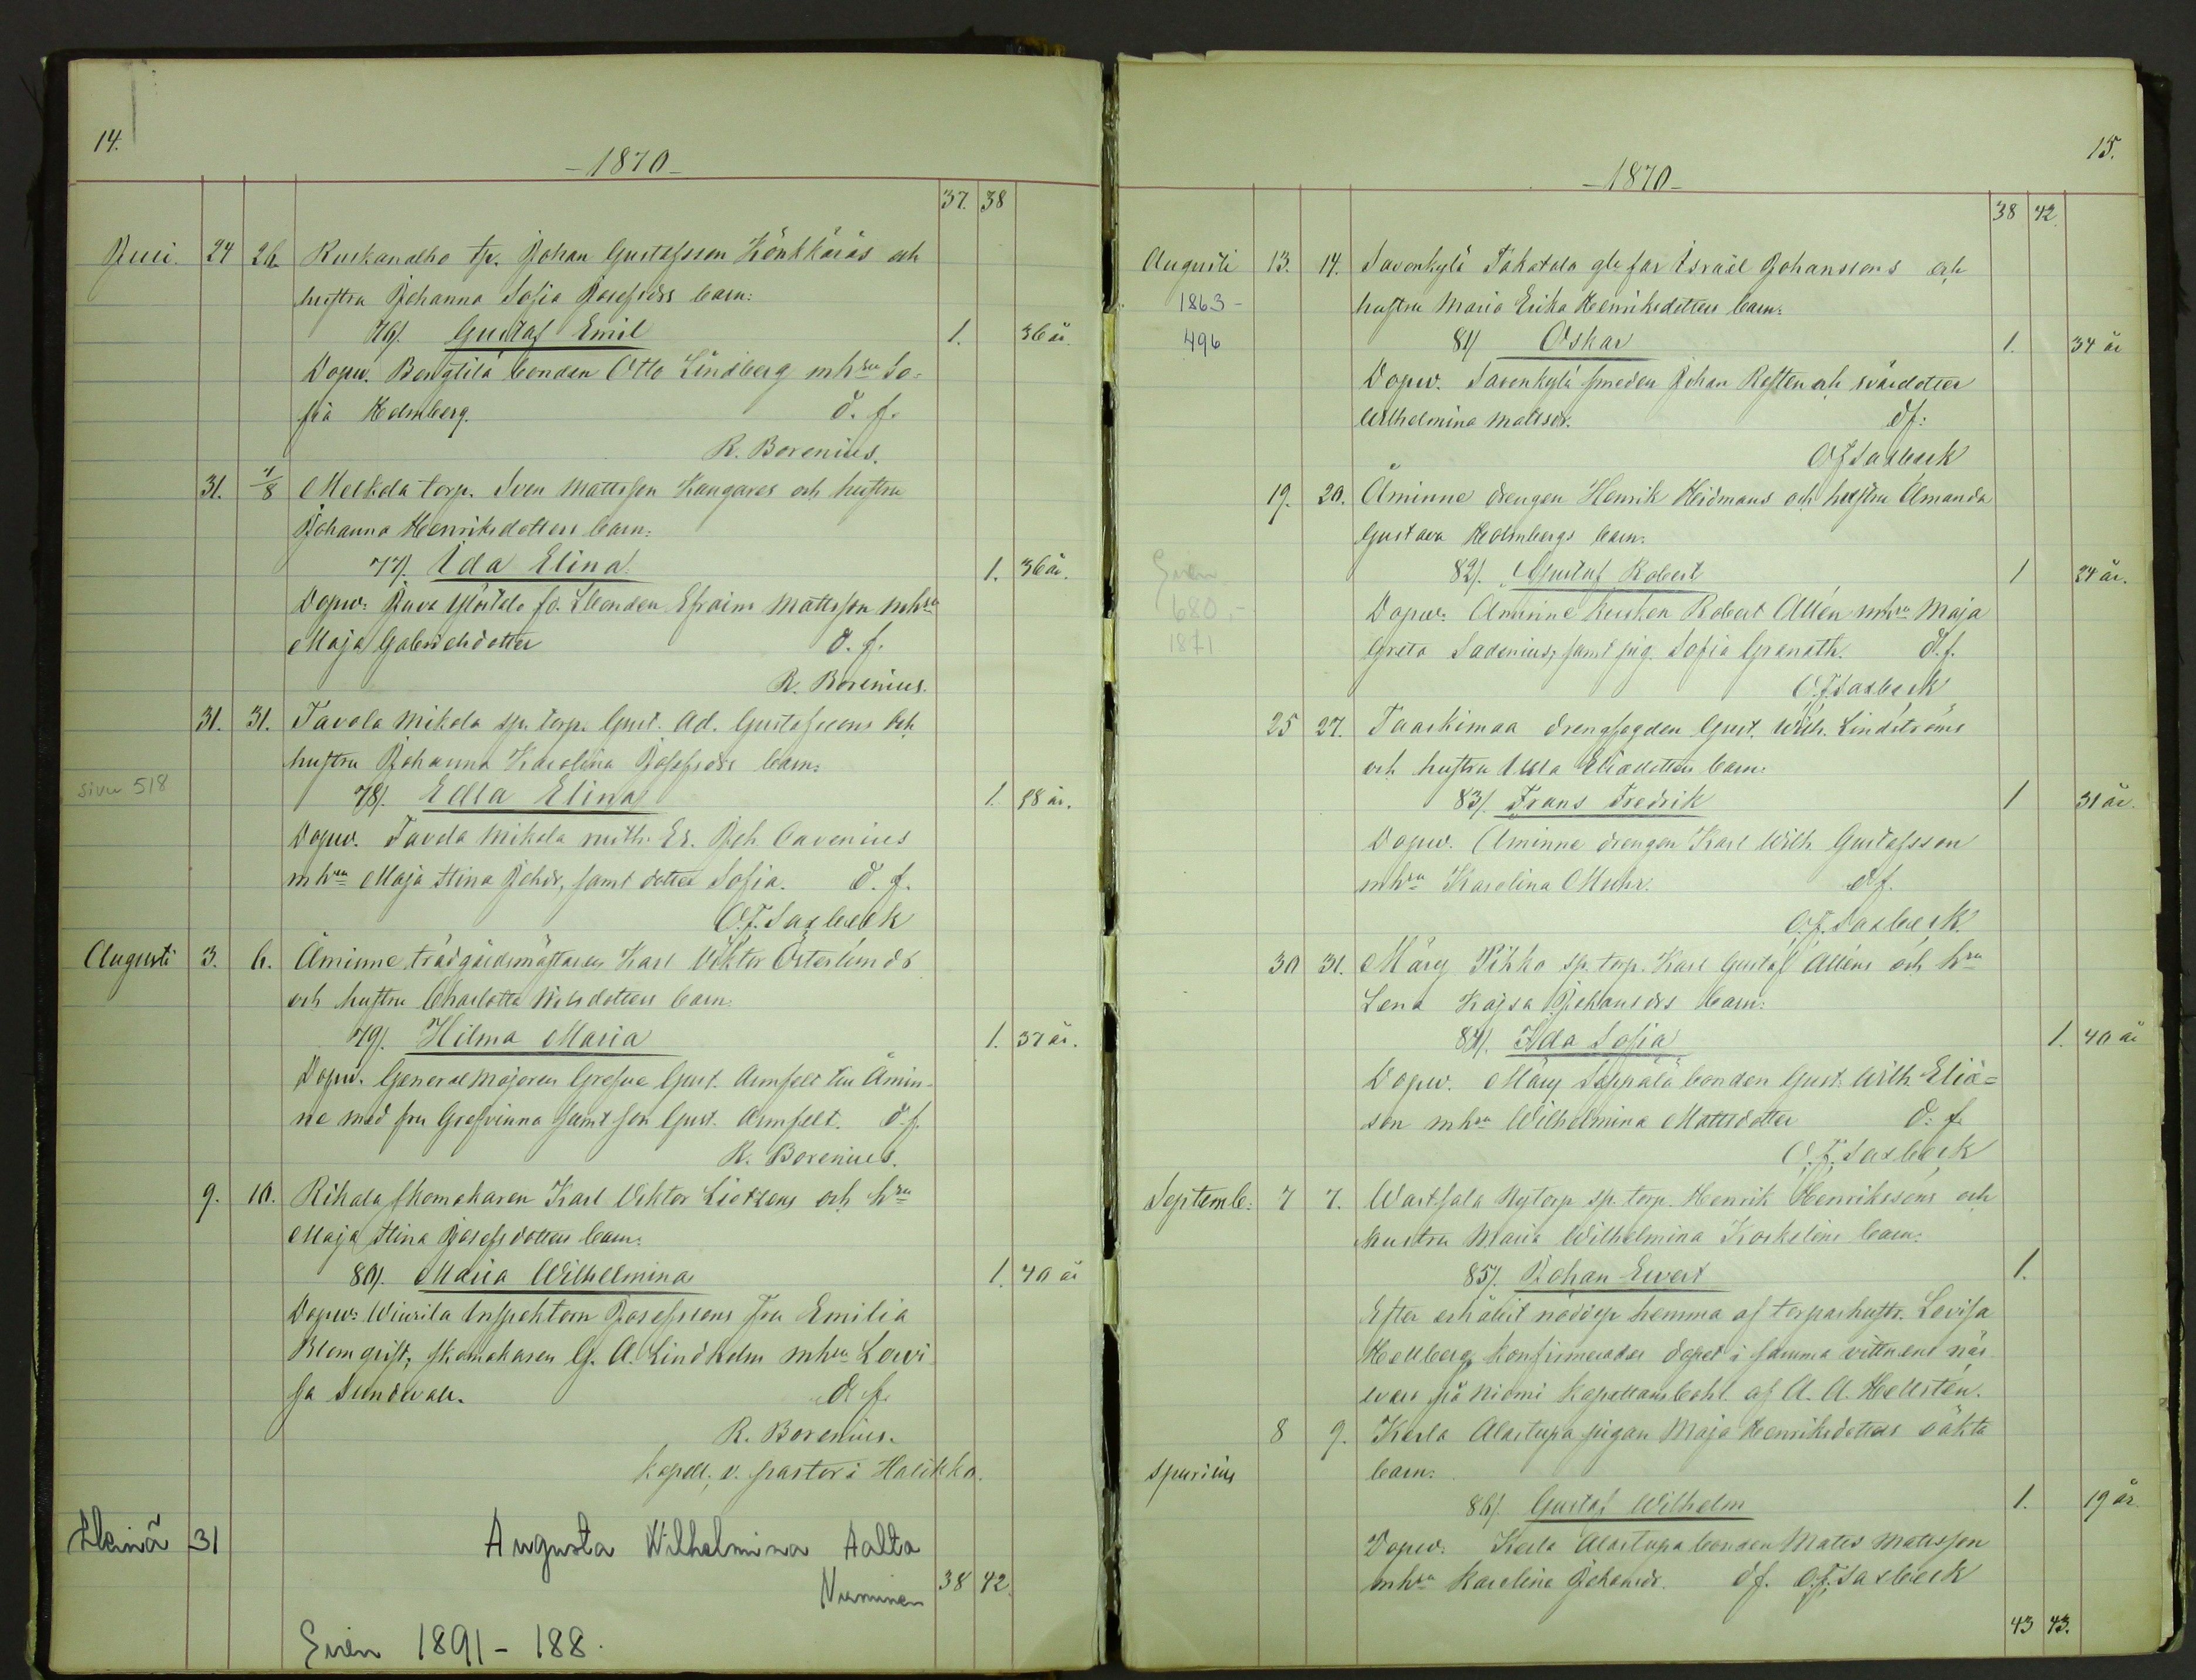 14.
- 1870 -
37. 38
Juli. 24 26. Ruskanalho tp. Johan Gustafsson Könkkäräs och
hustru Johanna Sofia Josefsdrs barn:
76). Gustaf Emil 1. 36 år.
Dopw. Bengtilä bonden Otto Lindberg mhru So-
fia Holmberg. d. f.
R. Borenius.
31. 1/8 Melkola torp. Sven Mattsson Kangares och hustru
Johanna Henriksdotters barn:
77). Ida Elina 1. 36 år.
Dopw: fd. Lbonden Efraim Mattsson mhru
Maja Gabrielsdotter d. f.
R. Borenius.
31. 31. Tavola Mikola sp. torp. Gust. Ad. Gustafssons och
hustru Johanna Karolina Josefsdrs barn:
sivu 518
78). Edla Elina 1. 28 år.
Dopw. Tavola Mikola Er. Joh. Cavenius
mhru Maja Stina Johdr, samt dotter Sofia. d. f.
O.F. Saxbeck
Augusti 3. 6. Åminne trädgårdsmästaren Karl Viktor Österlunds
och hustru Charlotta Nilsdotters barn:
79). Hilma Maria 1. 37 år.
Dopw. Generalmajoren Grefve Gust. Armfelt till Åmin-
ne med fru Grefvinna samt son Gust. Armfelt. d. f.
R. Borenius.
9. 10. Rikala skomakaren Karl Viktor Liotzens och hru
Maja Stina Josefsdotters barn:
80). Maria Wilhelmina 1. 40 år
Dopw: Wiurila Inspektorn Josefssons fru Emilia
Blomqvist, skomakaren G. A. Lindholm mhru Lovi
sa Sundvall. d. f.
R. Borenius.
kapell. v. pastor i Halikko.
Heinä 31 Augusta Wilhelmina Aalto
Nieminen 38 42.
Siven 1891 - 188.
15.
- 1870 -
38 42
Augusti 13. 14. Savenkylä Takatalo Israël Johanssons och
1863 - hustru Maria Erika Henriksdotters barn:
496 81) Oskar 1. 34 år
Dopw. Savenkylä smeden Johan Rosten och svärdotter
Wilhelmina Mattsdr. df:
OF Saxbeck
19. 20. Åminne drengen Henrik Heidmans och hustru Amanda
Gustava Holmbergs barn:
Siven 82). Gustaf Robert 1 24 år.
680.- Dopw. Åminne kusken Robert Allén mhru Maja
1871 Greta Sadenius, samt pig. Sofia Granath. d. f.
O.F. Saxbeck
25 27. Taaskimaa drengfogden Gust. Wilh. Lindströms
och hustru Ulla Eliædotters barn:
83). Frans Fredrik 1 31 år.
Dopw. Åminne drengen Karl Wilh. Gustafsson
mhru Karolina Muhr. df.
O.F. Saxbeck
30 31. Märy Pihko sp. torp. Karl Gustaf Alléns och hru
Lena Kajsa Johansdrs barn:
84). Ida Sofia 1. 40 år
Dopw. Märy Seppälä bonden Gust. Wilh. Eliæ=
son mhru Wilhelmina Mattsdotter d. f.
O.F. Saxbeck
Septemb: 7 7. Wartsala Nytorp sp. torp. Henrik Henrikssons och
hustru Maria Wilhelmina Koskelins barn:
85). Johan Evert 1.
Efter erhållit nöddop hemma af torparhustr. Lovisa
Hellberg, konfirmerades dopet i samma vittnens när
varo på Niemi kapellansbohl. af A. A. Hellsten.
8 9. Kesla Alastupa pigan Maja Henriksdotters oäkta
spurius barn:
86). Gustaf Wilhelm 1. 19 år.
Dopw. Kesla Alastupa bonden Mats Mattsson
mhru Karolina Johansdr. df. O.F. Saxbeck
43 43.